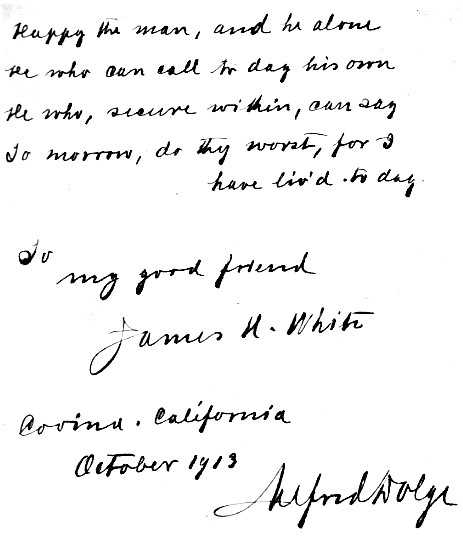 Happy the man, and he alone
He who can call to day his own
He who, secure within, can say
To morrow, do thy worst, for I
have liv'd to day.
To
my good friend
James H. White
Covina. California
October 1913
Alfred Dolge